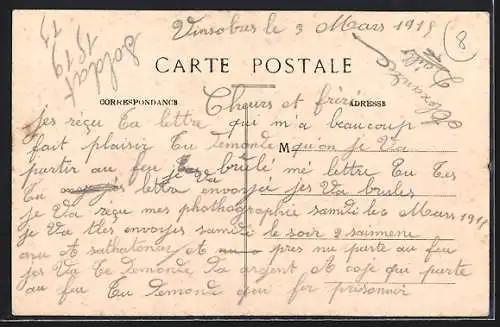 Vinsobres le 3 Mars 1918
8
Soldat
1519
CARTE POSTALE
CORRESPONDANCE
ADRESSE
Cheurs et frère
jes reçu Ta lettre qui m'a beaucoup
fait plaisir Tu demande M qu'on je Va
partir au feu je Va brulé mé lettre Tu Tes
Tu lettre envoyée jes Va brules
je Va reçu mes phothographie samdi le 6 Mars 1918
je Va tles envoyes samdi le soir 2 saimene
anu A sathatonay et pres nu parte au feu
jes Va Te demande Da argent A coje qui parte
au feu Tu demande qui fer prisonnir